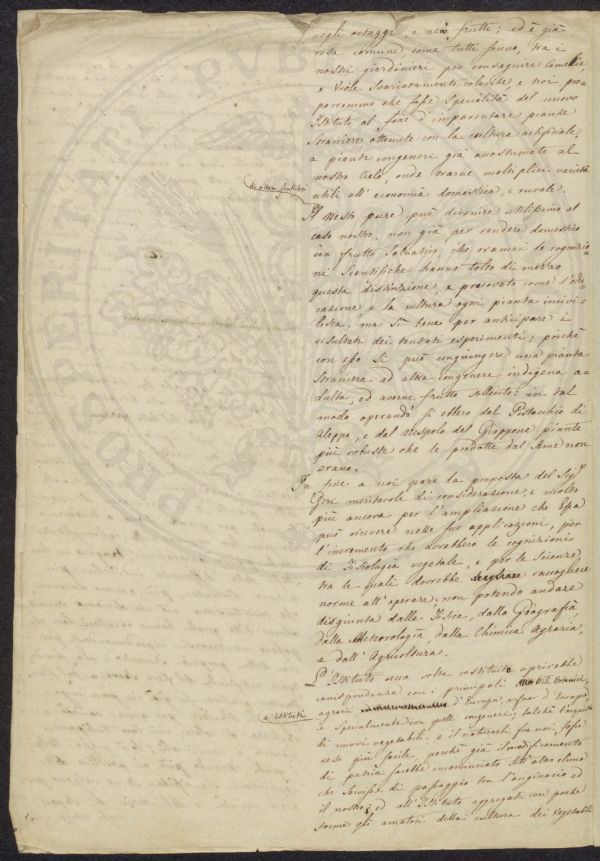 negli ortaggi, e nei frutti: ed è già
cosa comune come tutti fanno, tra i
nostri giardinieri per conseguire Camelie
e Viole svariatamente colorite, e noi pro-
porremmo che fosse specialità del nuovo
Istituto al fine d'imparentare piante
straniere ottenute con la cultura artificiale,
a piante congeneri già accostumate al
nostro Cielo, onde trarne moltiplici varietà
utili all'economia domestica, e rurale.
di alberi fruttiferi
Il Nesto pure può divenire utilissimo al
caso nostro, non già per rendere domestico
un frutto Salvatico, che oramai le cognizio-
ni Scientifiche hanno tolto di mezzo
questa distinzione, e provata come l'edu-
cazione e la cultura ogni pianta incivi-
lisca: ma si bene per anticipare i
risultati dei tentati esperimenti, poichè
con esso si può congiungere una pianta
straniera ad altra congenere indigena a-
dulta, ed averne frutto sollecito: in tal
modo operando si ebbero dal Pistacchio di
Aleppo, e dal Nespolo del Giappone piante
più robuste che le prodotte dal Seme non
erano.
In fine a noi pare la proposta del Sigr
Geri meritevole di considerazione, e molto
più ancora per l'ampliazione che Essa
può ricevere nelle sue applicazioni, per
l'incremento che dovrebbero le cognizioni
di Fisiologia vegetale, e per le Scienze
tra le quali dovrebbe raccogliere
norme all'operare, non potendo andare
disgiunta dalla Fisica, dalla Geografia
dalla Meteorologia dalla Chimica Agraria,
e dall'Agricoltura.
L'Istituto una volta costituito aprirebbe
corrispondenza con i principali Orti Botanici,
e Istituti
agrari d'Europa, e fuor d'Europa
e Specialmente con quelli congeneri; talchè l'acquisto
di nuovi vegetabili e il naturarli fra noi fosse
reso più facile, perchè già il modificamento
di patria sarebbe incominciato sott'altro clima
che servisse di passaggio tra l'originario ed
il nostro: ed all'Istituto aggregati con poche
somme gli amatori della cultura dei vegetabili